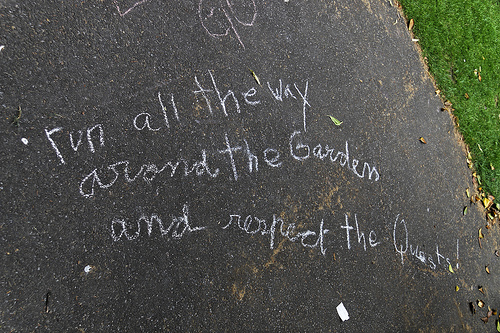 run all the way
around the Garden
and respect the Quests!